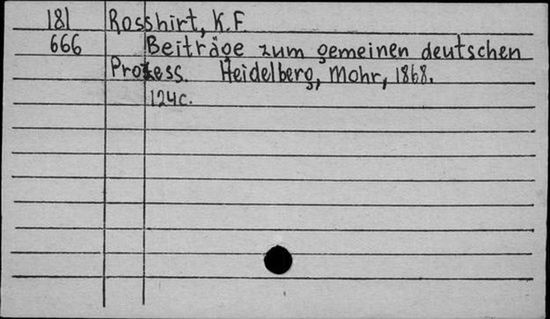 181 Rosshirt, K.F.
666 Beiträge zum gemeinen deutschen
Prozess. Heidelberg, Mohr, 1868.
124c.